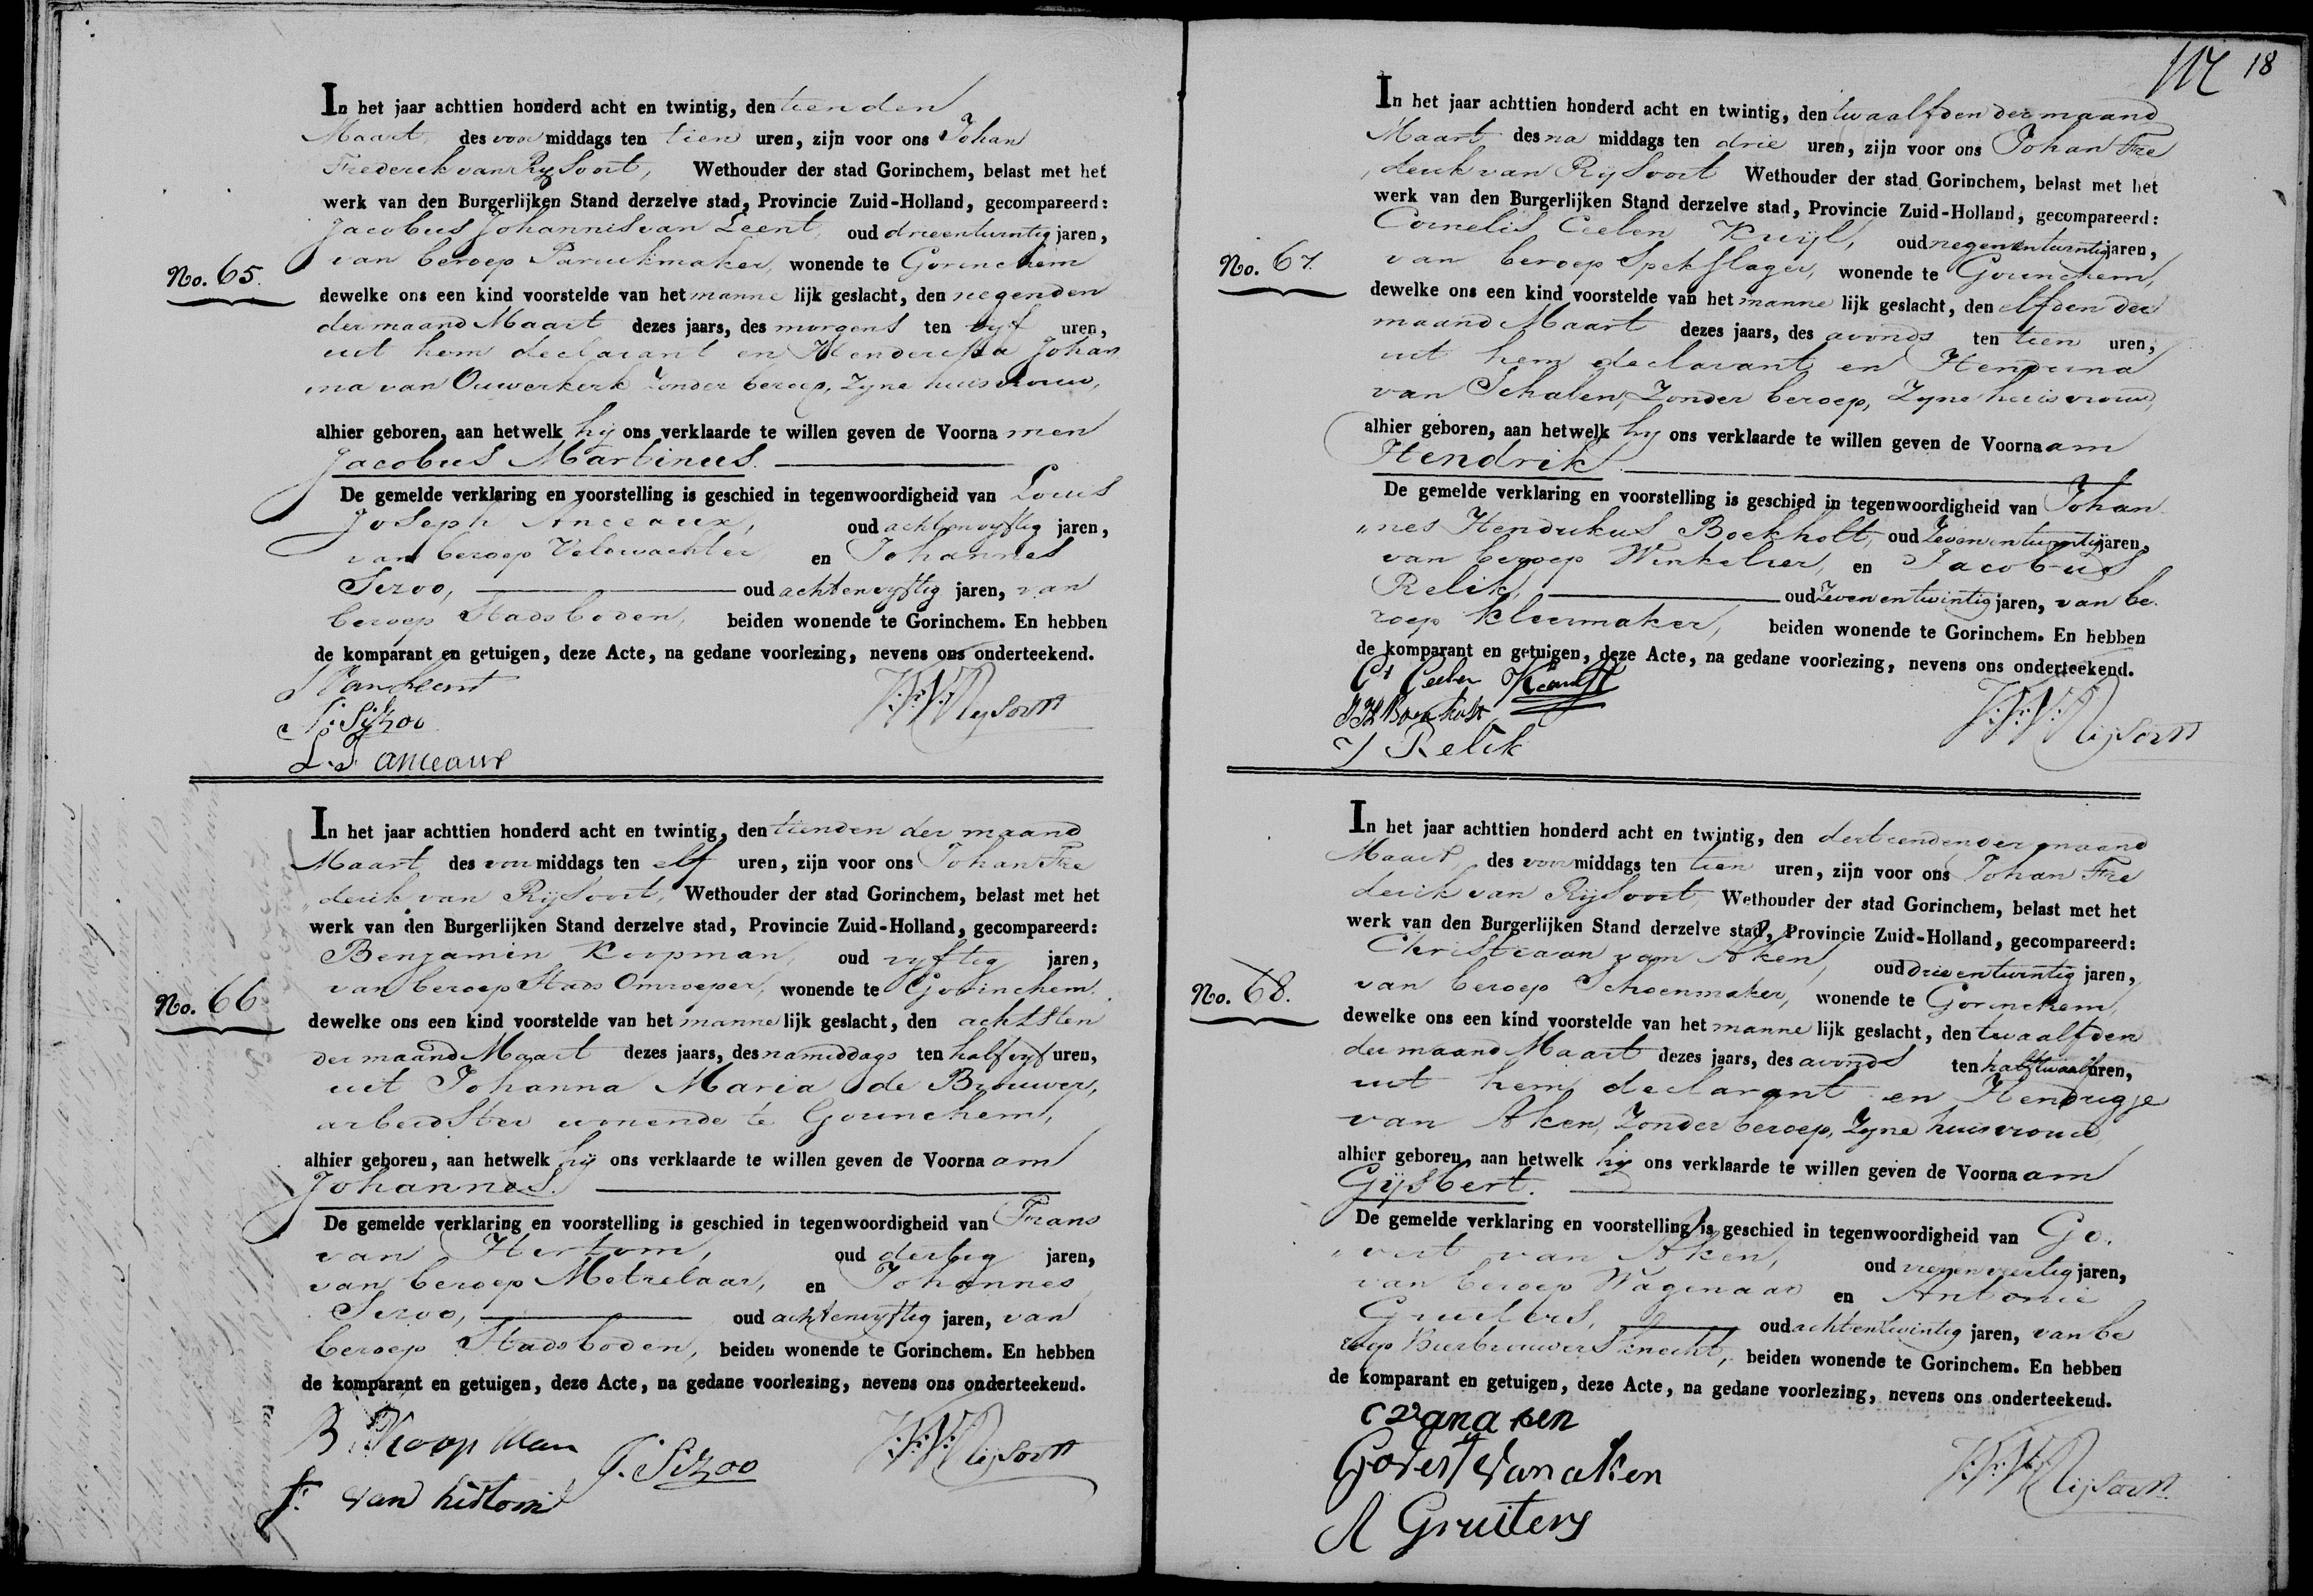 In het jaar achttien honderd acht en twintig, den tienden
Maart des voor middags ten tien uren, zijn voor ons Johan
Frederik van Rijsoort, Wethouder der stad Gorinchem, belast met het
werk van den Burgerlijken Stand derzelve stad, Provincie Zuid-Holland, gecompareerd:
Jacobus Johannis van Leent, oud drieentwintig jaren,
van beroep Paruikmaker, wonende te Gorinchem
No. 65.
dewelke ons een kind voorstelde van het manne lijk geslacht, den negenden
der maand Maart dezes jaars, des morgens ten vyf uren,
uit hem declarant en Henderika Johan
na van Ouwerkerk zonder beroep, zyne huisvrouw,
alhier geboren, aan hetwelk hij ons verklaarde te willen geven de Voorna men
Jacobus Martinus.
De gemelde verklaring en voorstelling is geschied in tegenwoordigheid van Louis
Joseph Anceaux, oud achtenvyftig jaren,
van beroep Veldwachter en Johannes
Sizoo, oud achtenvyftig jaren, van
beroep Stadsboden, beiden wonende te Gorinchem. En hebben
de komparant en getuigen, deze Acte, na gedane voorlezing, nevens ons onderteekend.
J Van Leent
J. Sizoo
L. J. anceaux
In het jaar achttien honderd acht en twintig, den tienden der maand
Maart des voor middags ten elf uren, zijn voor ons Johan Fre
„derik van Rijsoort, Wethouder der stad Gorinchem, belast met het
werk van den Burgerlijken Stand derzelve stad, Provincie Zuid-Holland, gecompareerd:
Benjamin Koopman, oud vyftig jaren,
van beroep Stads Omroeper, wonende te Gorinchem.
No. 66
dewelke ons een kind voorstelde van het manne lijk geslacht, den achtsten
der maand Maart dezes jaars, des namiddags ten half vyf uren,
uit Johanna Maria de Brouwer,
arbeidster wonende te Gorinchem,
alhier geboren, aan hetwelk hij ons verklaarde te willen geven de Voorna am
Johannes.
De gemelde verklaring en voorstelling is geschied in tegenwoordigheid van Frans
van Hertom, oud dertig jaren,
van beroep Metzelaar, en Johannes
Sizoo, oud achtenvyftig jaren, van
beroep Stadsboden, beiden wonende te Gorinchem. En hebben
de komparant en getuigen, deze Acte, na gedane voorlezing, nevens ons onderteekend.
B. Koopman
J. Sizoo
f. van hertom
18
In het jaar achttien honderd acht en twintig, den twaalfden der maand
Maart des na middags ten drie uren, zijn voor ons Johan Fre
„derik van Rijsoort Wethouder der stad Gorinchem, belast met het
werk van den Burgerlijken Stand derzelve stad, Provincie Zuid-Holland, gecompareerd:
Cornelis Ceelen Kruijl, oud negenentwintig jaren,
van beroep Spekslager, wonende te Gorinchem,
No. 67.
dewelke ons een kind voorstelde van het manne lijk geslacht, den elfden der
maand Maart dezes jaars, des avonds ten tien uren,
uit hem declarant en Hendrina
van Schalen, zonder beroep, zyne huisvrouw,
alhier geboren, aan hetwelk hij ons verklaarde te willen geven de Voorna am
Hendrik.
De gemelde verklaring en voorstelling is geschied in tegenwoordigheid van Johan
„nes Hendrikus Boekholt, oud zevenentwintig jaren,
van beroep Winkelier, en Jacobus
Relik, oud zevenentwintig jaren, van be
roep kleermaker, beiden wonende te Gorinchem. En hebben
de komparant en getuigen, deze Acte, na gedane voorlezing, nevens ons onderteekend.
Cs Ceelen
J H Boekholt
J Relik
In het jaar achttien honderd acht en twintig, den dertienden der maand
Maart des voor middags ten tien uren, zijn voor ons Johan Fre
derik van Rijsoort, Wethouder der stad Gorinchem, belast met het
werk van den Burgerlijken Stand derzelve stad, Provincie Zuid-Holland, gecompareerd:
Christiaan van Aken, oud drieentwintig jaren,
van beroep Schoenmaker, wonende te Gorinchem,
No. 68.
dewelke ons een kind voorstelde van het manne lijk geslacht, den twaalfden
der maand Maart dezes jaars, des avonds ten half twaalf uren,
uit hem declarant en Hendrigje
van Aken, zonder beroep, zyne huisvrouw
alhier geboren, aan hetwelk hij ons verklaarde te willen geven de Voorna am
Gijsbert.
De gemelde verklaring en voorstelling is geschied in tegenwoordigheid van Go.
„vert van Aken, oud vierenveertig jaren,
van beroep Wagenaar en Antonie
Gruiters, oud achtentwintig jaren, van be
roep Bierbrouwersknecht, beiden wonende te Gorinchem. En hebben
de komparant en getuigen, deze Acte, na gedane voorlezing, nevens ons onderteekend.
c van aken
Govert van aken
A Gruiters